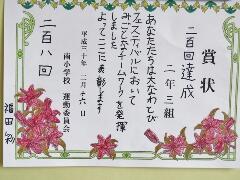 賞状
二百回達成
二年三組
あなたたちは大なわとび
フェスティバルにおいて
みごとなチームワークを発揮
しました
よってここに表彰します
平成三十年 二月十六日
南小学校 運動委員会
二百八回